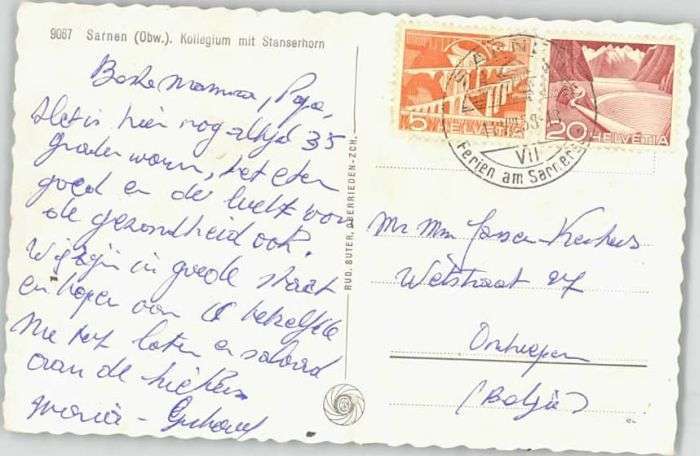 9067 Sarnen (Obw.). Kollegium mit Stanserhorn
Beste Mamma, Papa,
Het is hier nog altijd 35
graden warm, het eten
goed en de lucht voor
de gezondheid ook.
Wij zijn in goede staat
en hopen van U hetzelfde
Nu tot later en saluut
aan de
Maria -
RUD. SUTER, OBERRIEDEN-ZCH.
5 HELVETIA
20 HELVETIA
SARNEN
VII
Ferien am Sarnersee
Mr Mm Jansen-
27
Antwerpen
(België)